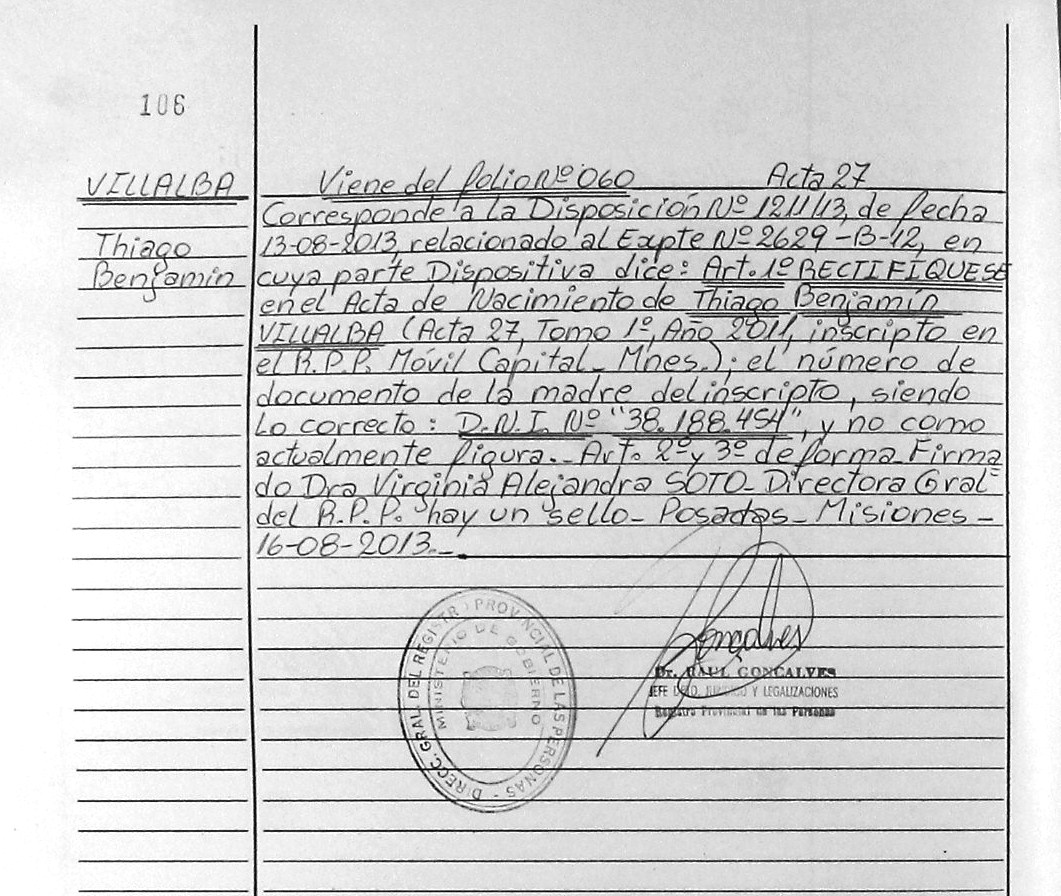 106
VILLALBA
Thiago
Benjamín
Viene del folio Nº 060 Acta 27
Corresponde a la Disposición Nº 1211/13, de fecha
13-08-2013, relacionado al Expte Nº 2629-B-12, en
cuya parte Dispositiva dice: Art. 1º RECTIFÍQUESE
en el Acta de Nacimiento de Thiago Benjamín
VILLALBA (Acta 27, Tomo 1º, Año 2011, inscripto en
el R.P.P. Móvil Capital_ Mnes.); el número de
documento de la madre del inscripto, siendo
Lo correcto: D.N.I. Nº "38.188.454", y no como
actualmente figura._ Art. 2º y 3º de forma_ Firma
do Dra Virginia Alejandra SOTO_ Directora Gral
del R.P.P. hay un sello_ Posadas_ Misiones_
16-08-2013._
DIRECC. GRAL. DEL REGISTRO PROVINCIAL DE LAS PERSONAS -
MINISTERIO DE GOBIERNO
Gonçalves
Dr. RAUL GONCALVES
JEFE Y LEGALIZACIONES
Registro Provincial de las Personas